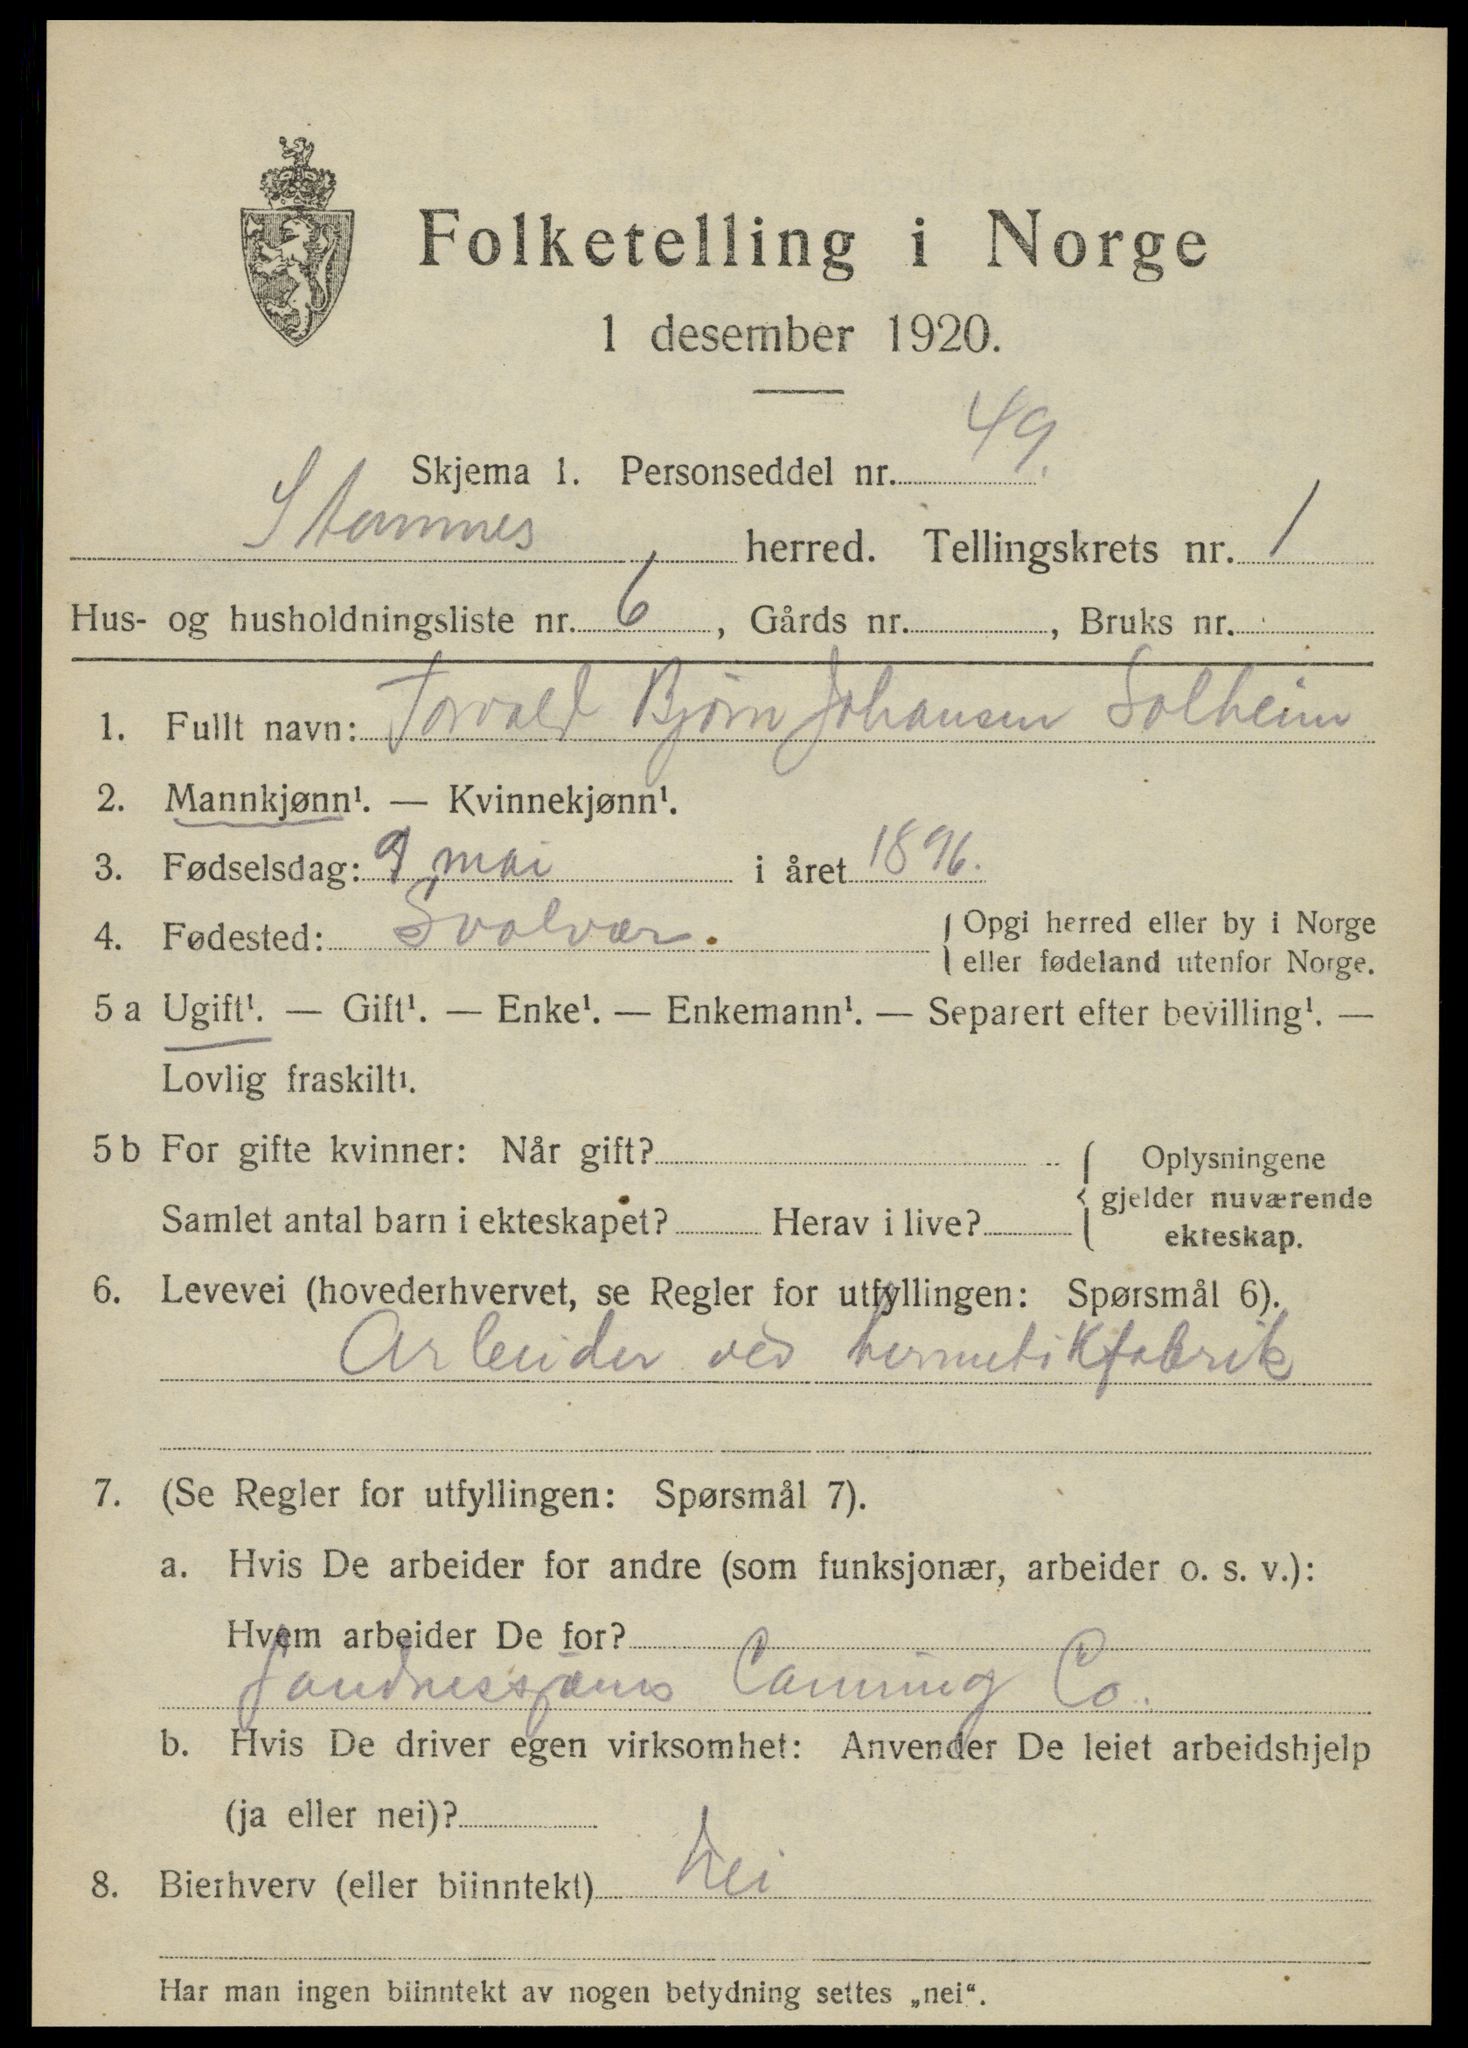 Folketelling i Norge
1 desember 1920.
Skjema 1. Personseddel nr. 49.
Stamnes herred. Tellingskrets nr. 1
Hus- og husholdningsliste nr. 6, Gårds nr. , Bruks nr.
1. Fullt navn: Torvald Bjørn Johansen Solheim
2. Mannkjønn¹. — Kvinnekjønn¹.
3. Fødselsdag: 9 mai i året 1896.
4. Fødested: Svolvær. { Opgi herred eller by i Norge
eller fødeland utenfor Norge.
5 a Ugift¹. — Gift¹. — Enke¹. — Enkemann¹. — Separert efter bevilling¹. —
Lovlig fraskilt¹.
5 b For gifte kvinner: Når gift? { Oplysningene
gjelder nuværende
Samlet antal barn i ekteskapet? Herav i live?
ekteskap.
6. Levevei (hovederhvervet, se Regler for utfyllingen: Spørsmål 6).
Arbeider ved hermetikfabrik
7. (Se Regler for utfyllingen: Spørsmål 7).
a. Hvis De arbeider for andre (som funksjonær, arbeider o. s. v.):
Hvem arbeider De for?
Sandnessjøens Canning Co.
b. Hvis De driver egen virksomhet: Anvender De leiet arbeidshjelp
(ja eller nei)?
8. Bierhverv (eller biinntekt) Nei
Har man ingen biinntekt av nogen betydning settes „nei“.